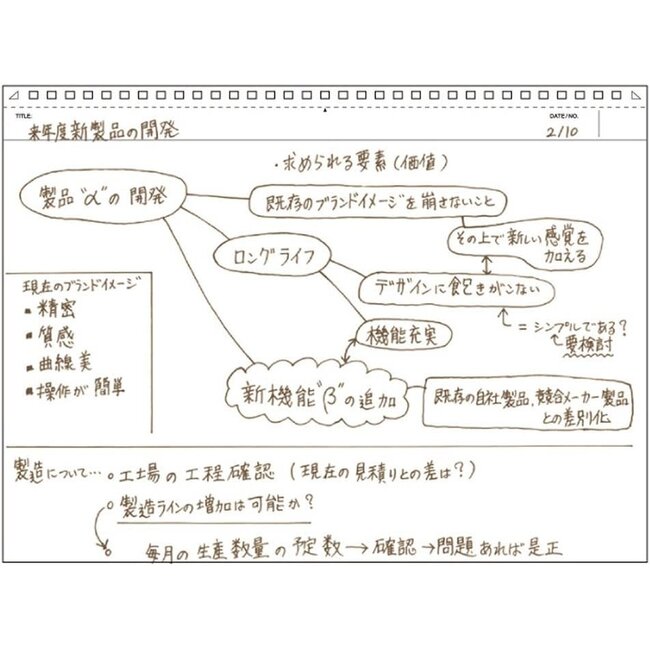 TITLE:
来年度新製品の開発
DATE/NO.
2/10
・求められる要素(価値)
製品"α"の開発
既存のブランドイメージを崩さないこと
その上で新しい感覚を
加える
ロングライフ
デザインに飽きがこない
= シンプルである?
要検討
機能充実
現在のブランドイメージ
▪精密
▪質感
▪曲線美
▪操作が簡単
新機能"β"の追加
既存の自社製品、競合メーカー製品
との差別化
製造について…○工場の工程確認(現在の見積りとの差は?)
○製造ラインの増加は可能か?
○毎月の生産数量の予定数→確認→問題あれば是正